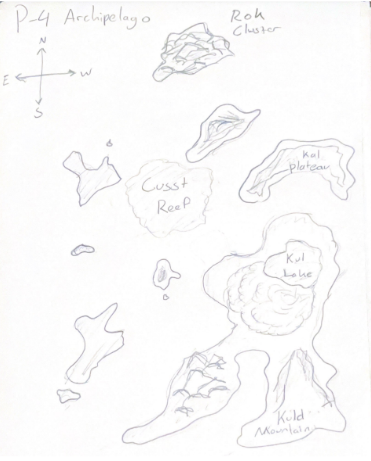 P-4 Archipelago
Rok
Cluster
N
E
W
S
Kal
plateau
Cusst
Reef
Kul
Lake
Kuld
Mountain